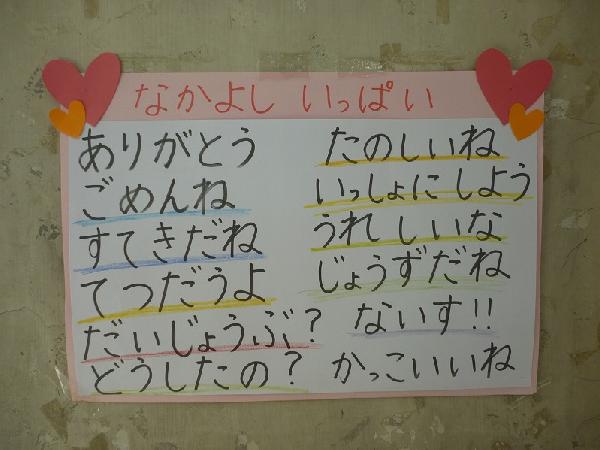 なかよし いっぱい
ありがとう
ごめんね
すてきだね
てつだうよ
だいじょうぶ?
どうしたの?
たのしいね
いっしょにしよう
うれしいな
じょうずだね
ないす!!
かっこいいね